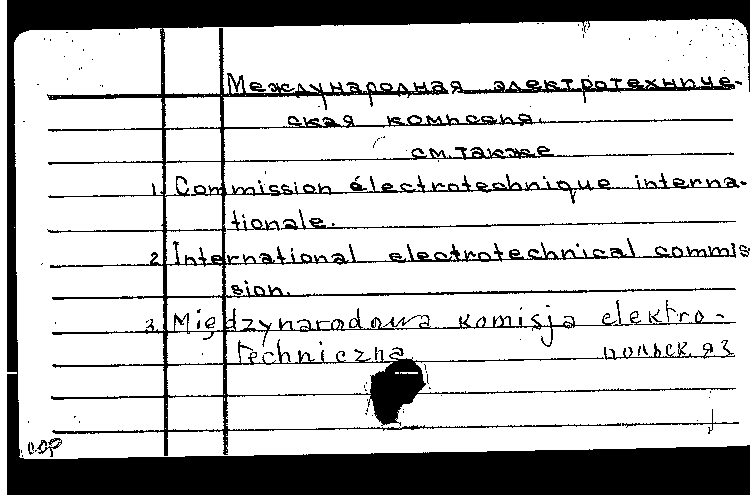 Международная электротехниче-
ская комиссия.
см. также
1. Commission électrotechnique interna-
tionale.
2. International electrotechnical commis-
sion.
3. Międzynarodowa komisja elektro-
techniczna
польск яз